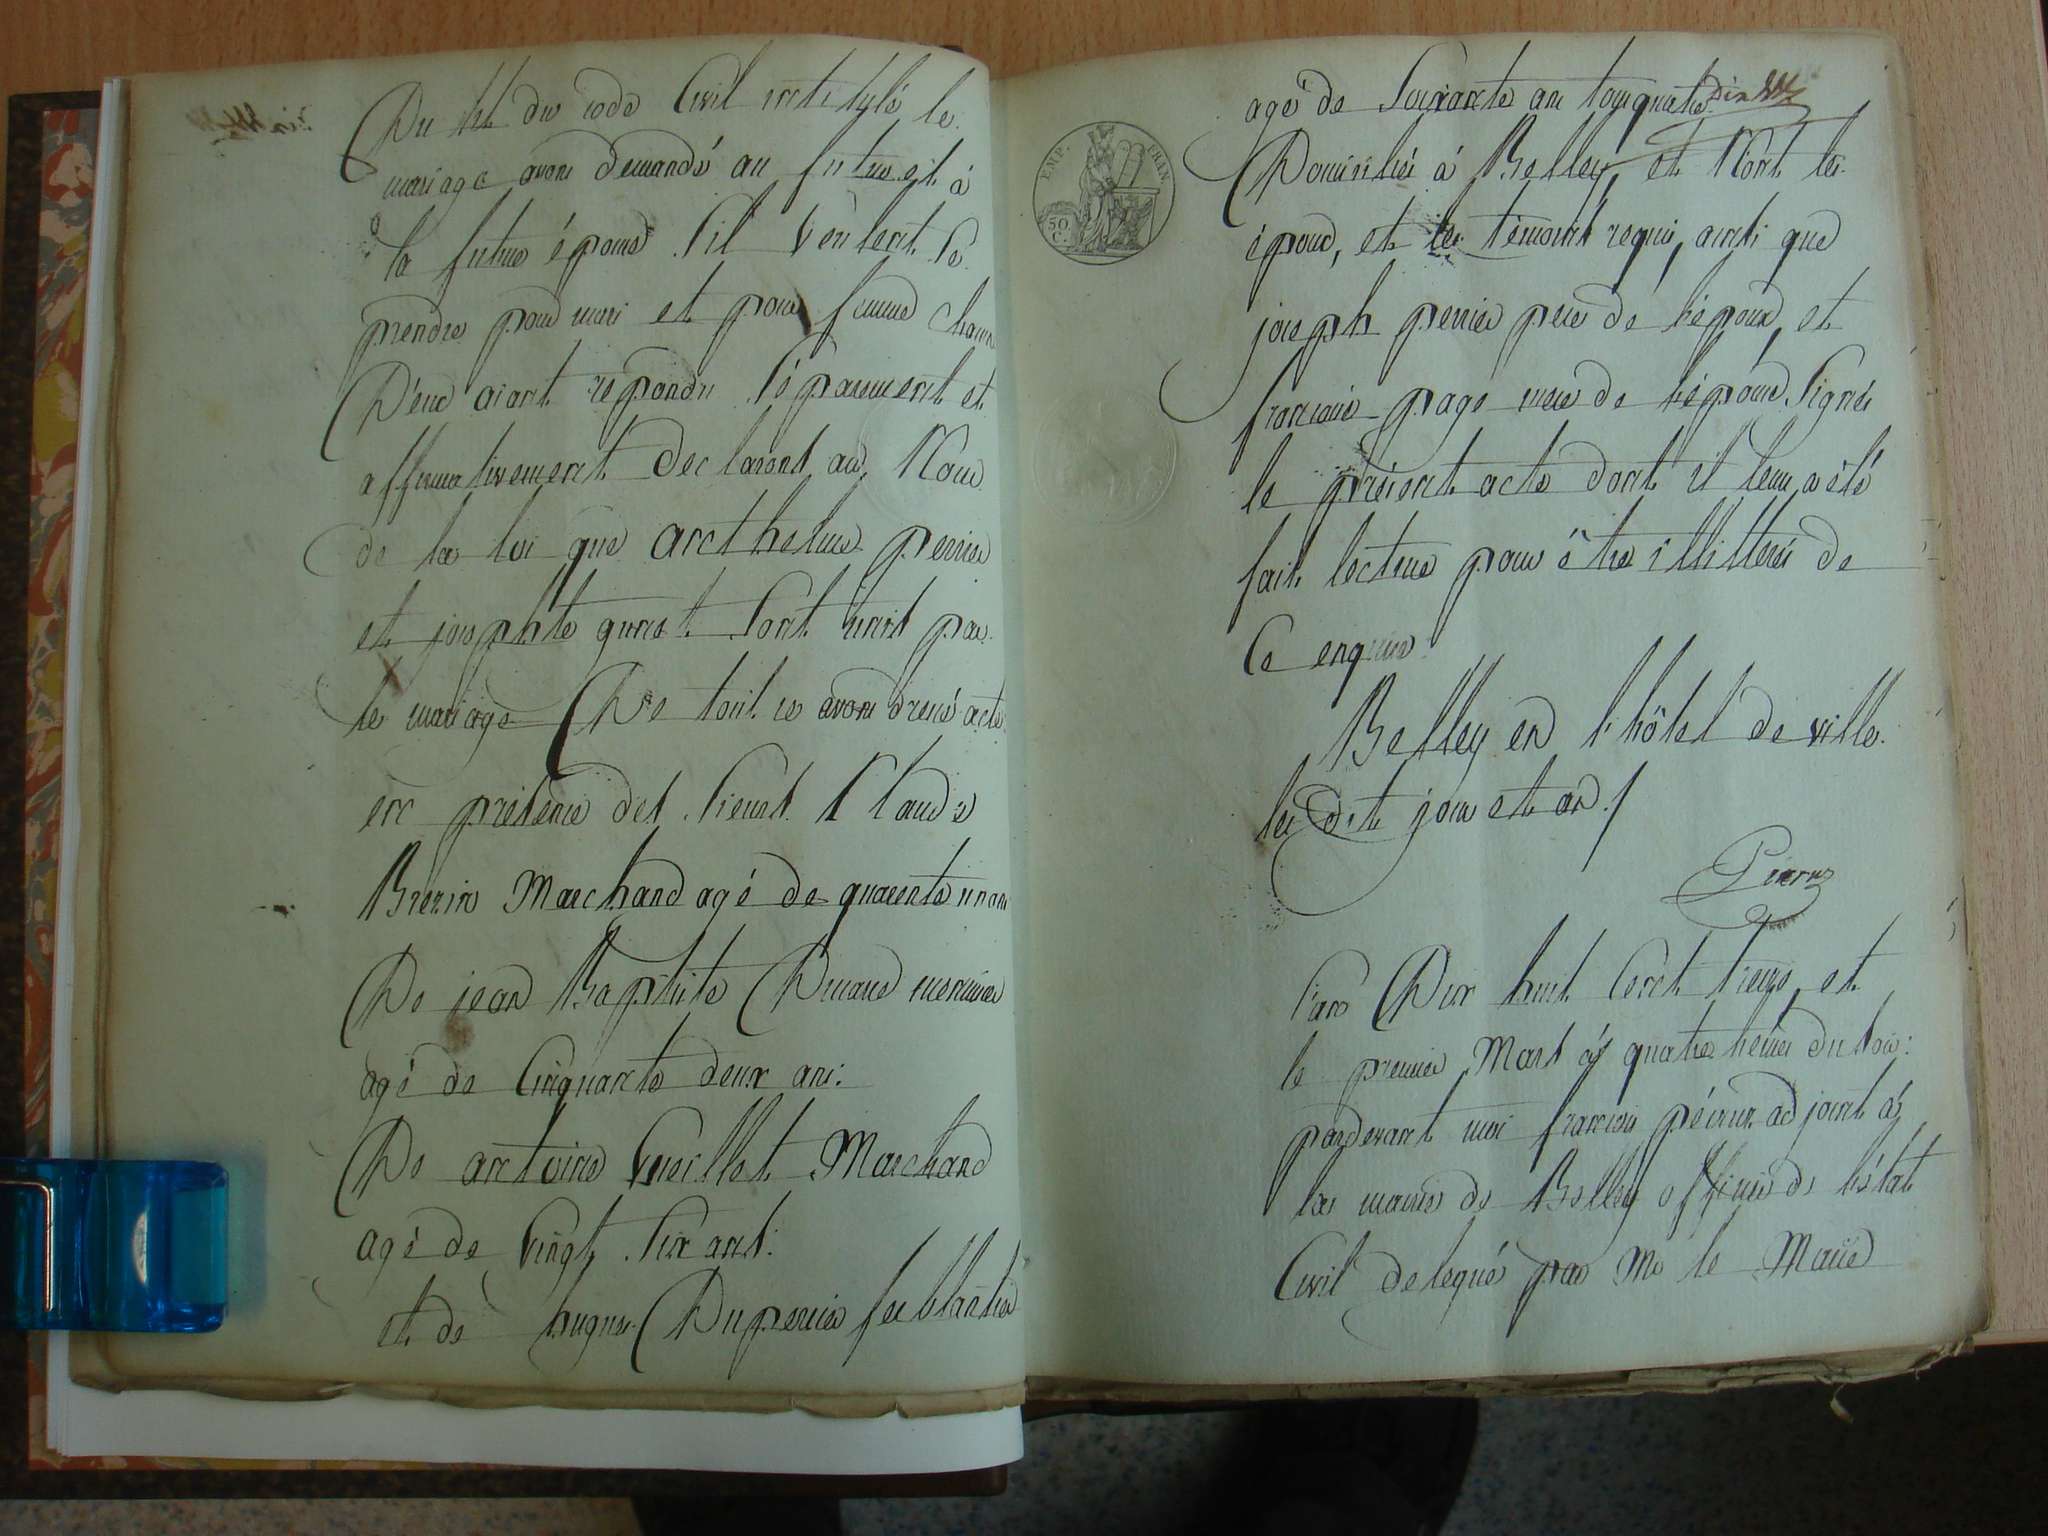 Du tit. du code Civil intitulé le
mariage avons demandé au futur et à
la future épouse s'il veulent se
prendre pour mari et pour femme chacun
D'eux aiant repondu séparement et
affirmativement declarons au Nom
de la loi que anthelme perrier
et josephte guret sont unis par
le mariage De tout ce avons dressé acte
en présence des sieurs Claude
Brezin Marchand agé de quarente un ans
De jean Baptiste menuisier
agé de Cinquante deux ans.
De antoine Marchand
agé de vingt six ans.
et de hugue Duperrier ferblantier
EMP. FRAN.
50 C.
agé de soixante ans tous quatre
Domiciliés à Belley, et N'ont les
époux, et les temoins requis, ainsi que
joseph perrier pere de l'époux, et
francoise page mere de l'épouse signés
le présent acte dont il leur a été
fait lecture pour être illitterés de
Ce enquis
Belley en l'hôtel de ville
les dits jour et an /
l'an Dix huit Cent treize, et
le premier Mars à quatre heures du soir:
pardevant moi francois adjoint à
la mairie de Belley officier de l'état
Civil delegué par Mr le Maire